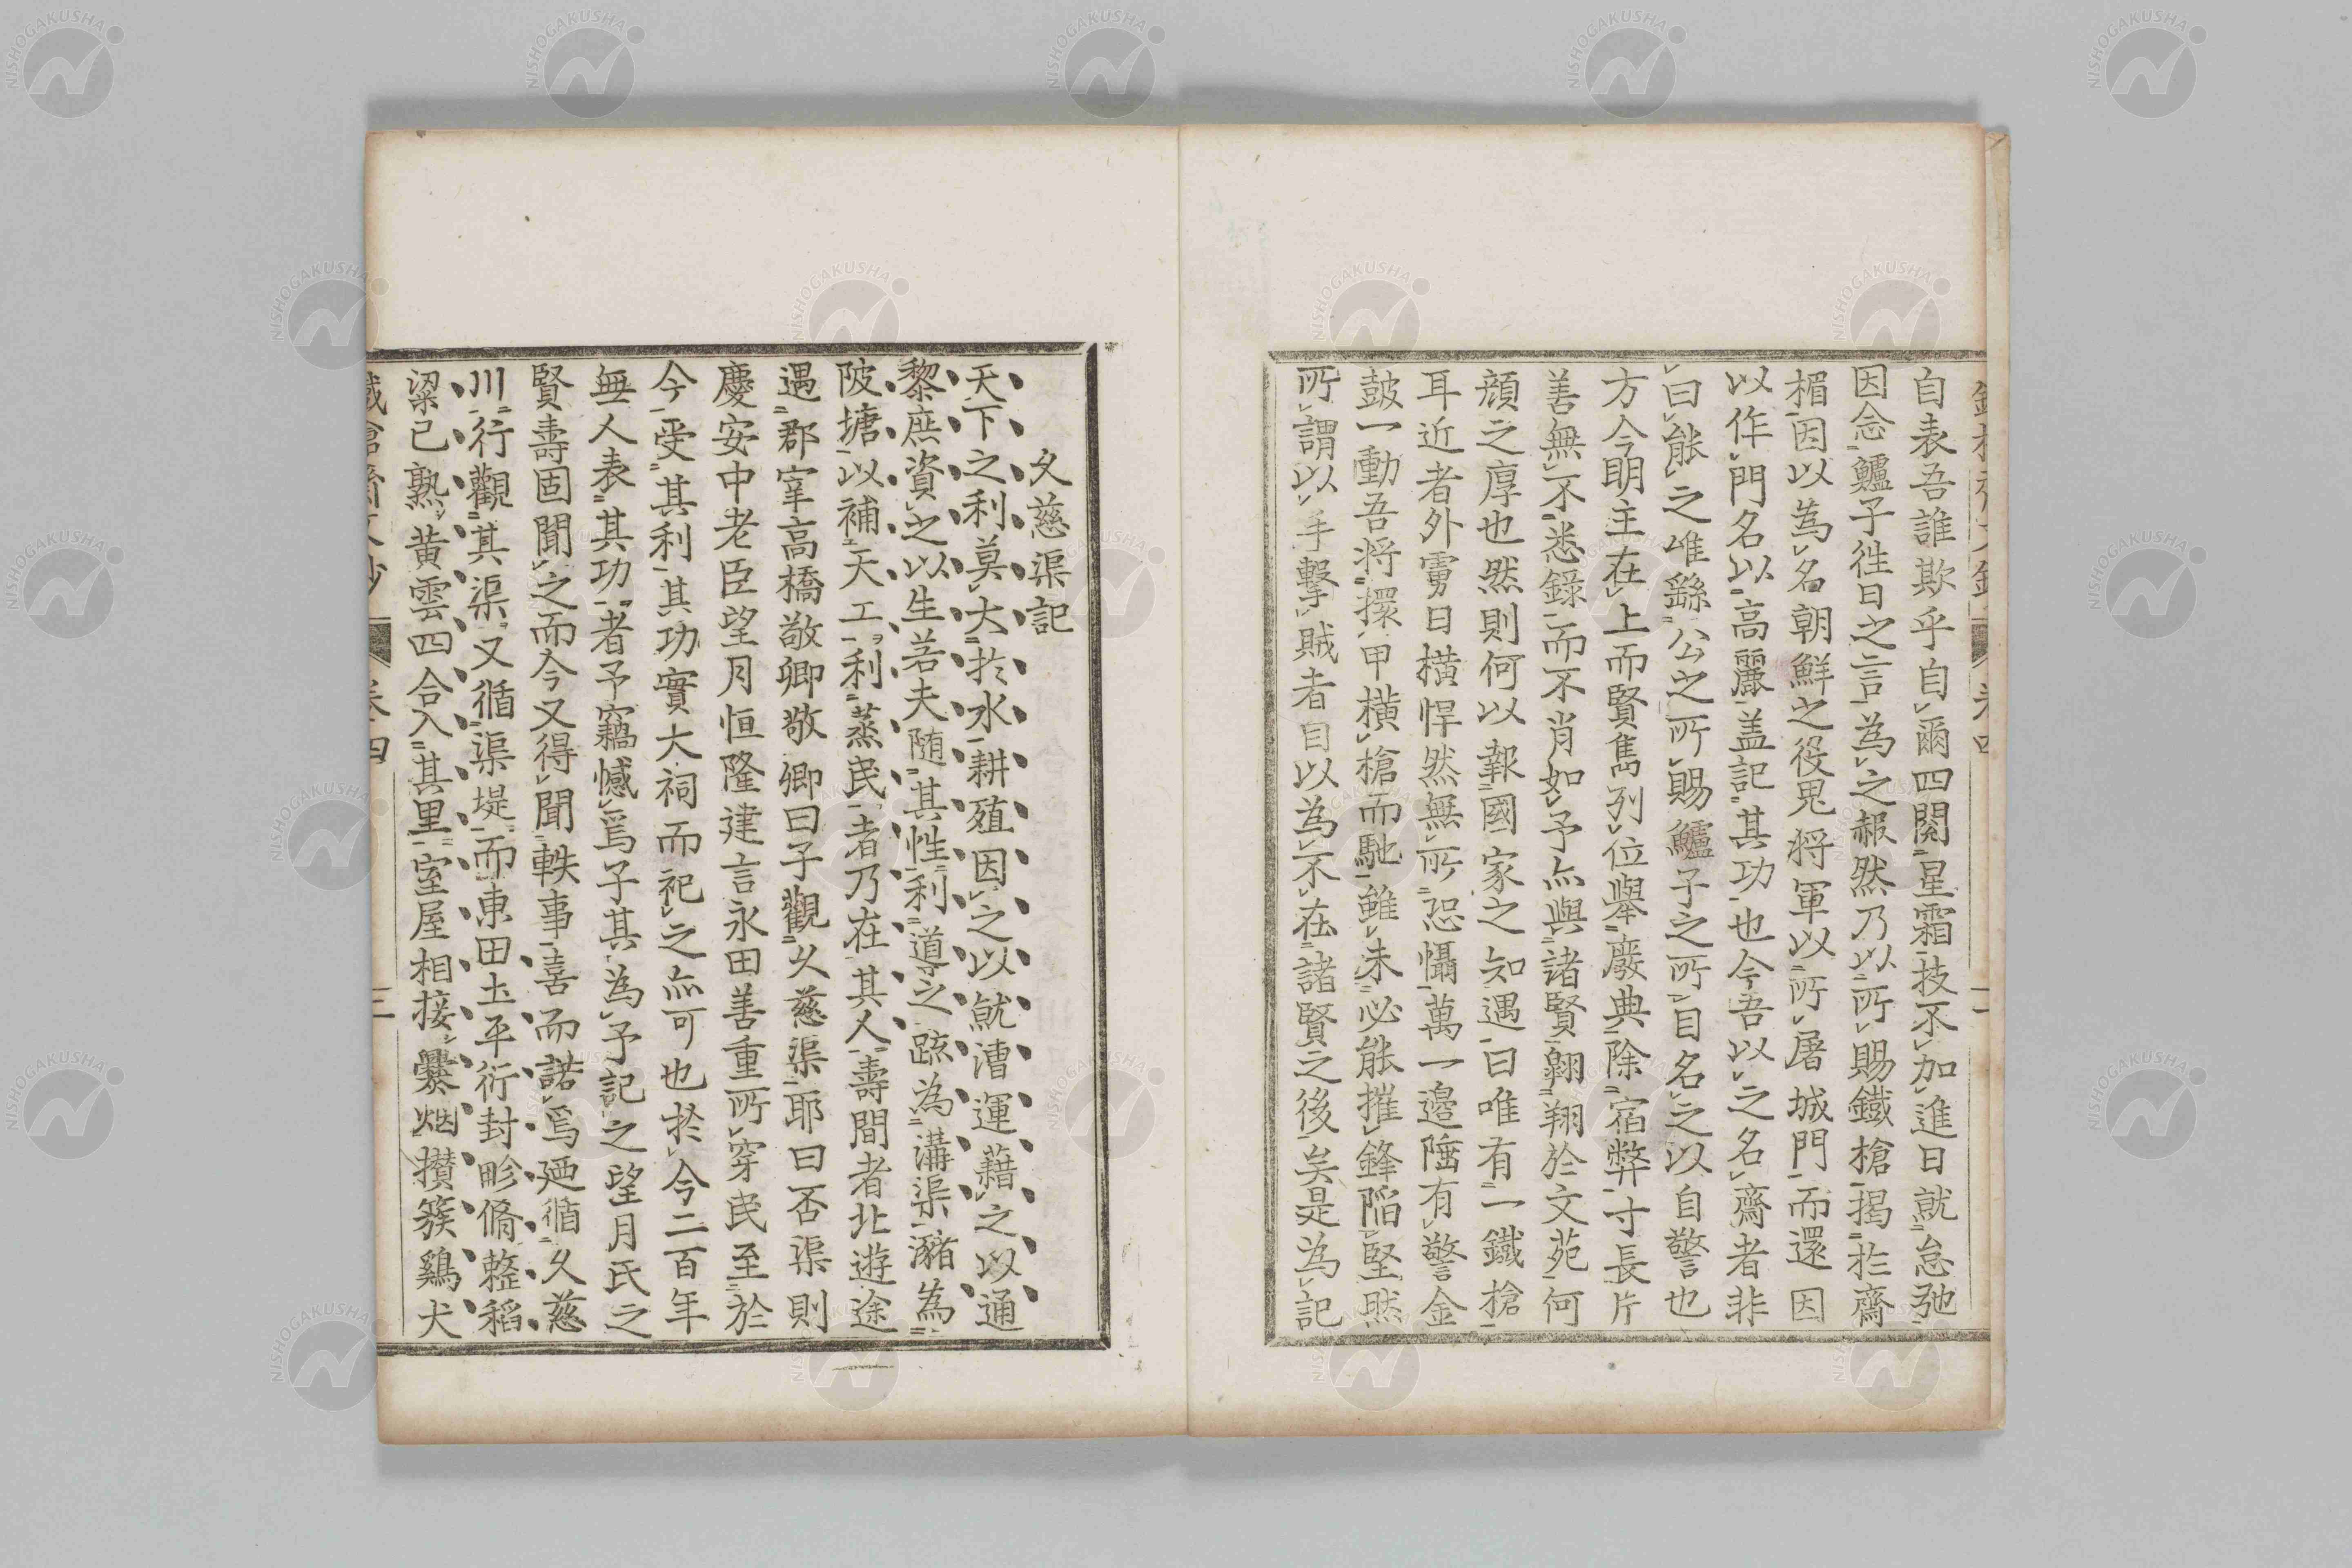 自表吾誰欺乎自爾四閱星霜技不加進日就怠弛
因念鱸子徃日之言為之赧然乃以所賜鐵槍揭扵齋
楣因以為名朝鮮之役鬼将軍以所屠城門而還因
以作門名以高麗盖記其功也今吾以之名齋者非
曰能之唯繇公之所賜鱸子之所目名之以自警也
方今明主在上而賢雋列位舉廢典除宿弊寸長片
善無不悉錄而不肖如予亦與諸賢翺翔於文苑何
頋之厚也然則何以報國家之知遇曰唯有一鐵槍
耳近者外虜日橫悍然無所忌懾萬一邊陲有警金
鼓一動吾将擐甲橫槍而馳雖未必能摧鋒陷堅然
所謂以手擊賊者自以為不在諸賢之後矣是為記
久慈渠記
天下之利莫大扵水耕殖因之以就漕運藉之以通
黎庶資之以生若夫随其性利導之疏為溝渠瀦為
陂塘以補天工利蒸民者乃在其人壽間者北遊途
遇郡宰高橋敬卿敬卿曰子觀久慈渠耶曰否渠則
慶安中老臣望月恒隆建言永田善重所穿民至於
今受其利其功實大祠而祀之亦可也於今二百年
無人表其功者予竊憾焉子其為予記之望月氏之
賢壽固聞之而今又得聞軼事喜而諾焉廼循久慈
川行觀其渠又循渠堤而東田土平衍封畛脩整稻
粱已熟黄雲四合入其里室屋相接爨烟攅簇鷄犬
鐵槍齋文鈔 卷四 三
NISHOGAKUSHA